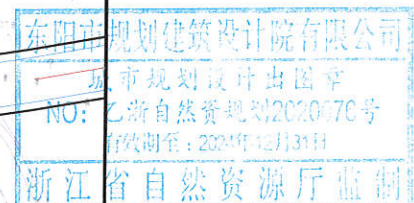 东阳市规划建筑设计院有限公司
城市规划设计出图章
NO：乙浙自然资规划2020070号
有效期至：2024年12月31日
浙江省自然资源厅监制